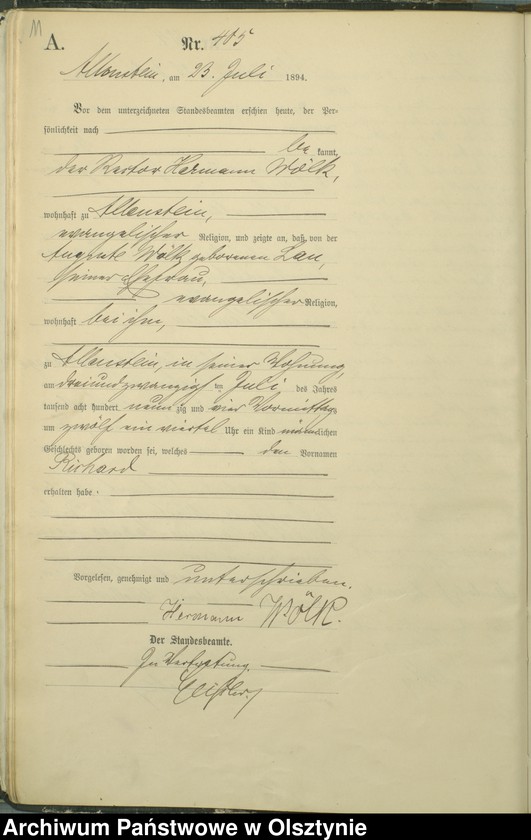 M
A.
Nr. 405
Allenstein, am 23. Juli 1894.
Vor dem unterzeichneten Standesbeamten erschien heute, der Per-
sönlichkeit nach
be kannt,
der Rector Hermann Wölk,
wohnhaft zu Allenstein,
evangelischer Religion, und zeigte an, daß von der
Auguste Wölk geborenen Lau,
seiner Ehefrau,
evangelischer Religion,
wohnhaft bei ihm,
zu Allenstein, in seiner Wohnung,
am dreiundzwanzigsten Juli des Jahres
tausend acht hundert neun zig und vier Vormittags
um zwölf ein viertel Uhr ein Kind männlichen
Geschlechts geboren worden sei, welches den Vornamen
Richard
erhalten habe.
Vorgelesen, genehmigt und unterschrieben.
Hermann Wölk.
Der Standesbeamte.
In Vertretung.
Archiwum Państwowe w Olsztynie